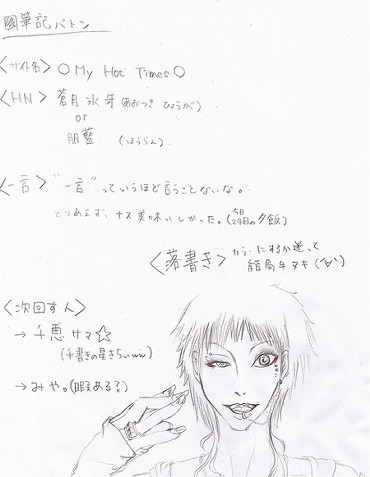 圖筆記バトン
〈サイト名〉 ○My Hot Times○
〈HN〉 蒼月 氷牙 (あおつき ひょうが)
or
朋藍 (ほうらん)
〈一言〉 "一言"っていうほど言うことないな。
とりあえず、ナス美味いしかった。(今日24日の夕飯)
〈落書き〉 カラーにするか迷って
結局手ヌキ(´∀`)
〈次回す人〉
→ 千恵サマ☆
(手書きの星きちぃww)
→ みや。(暇ある?)